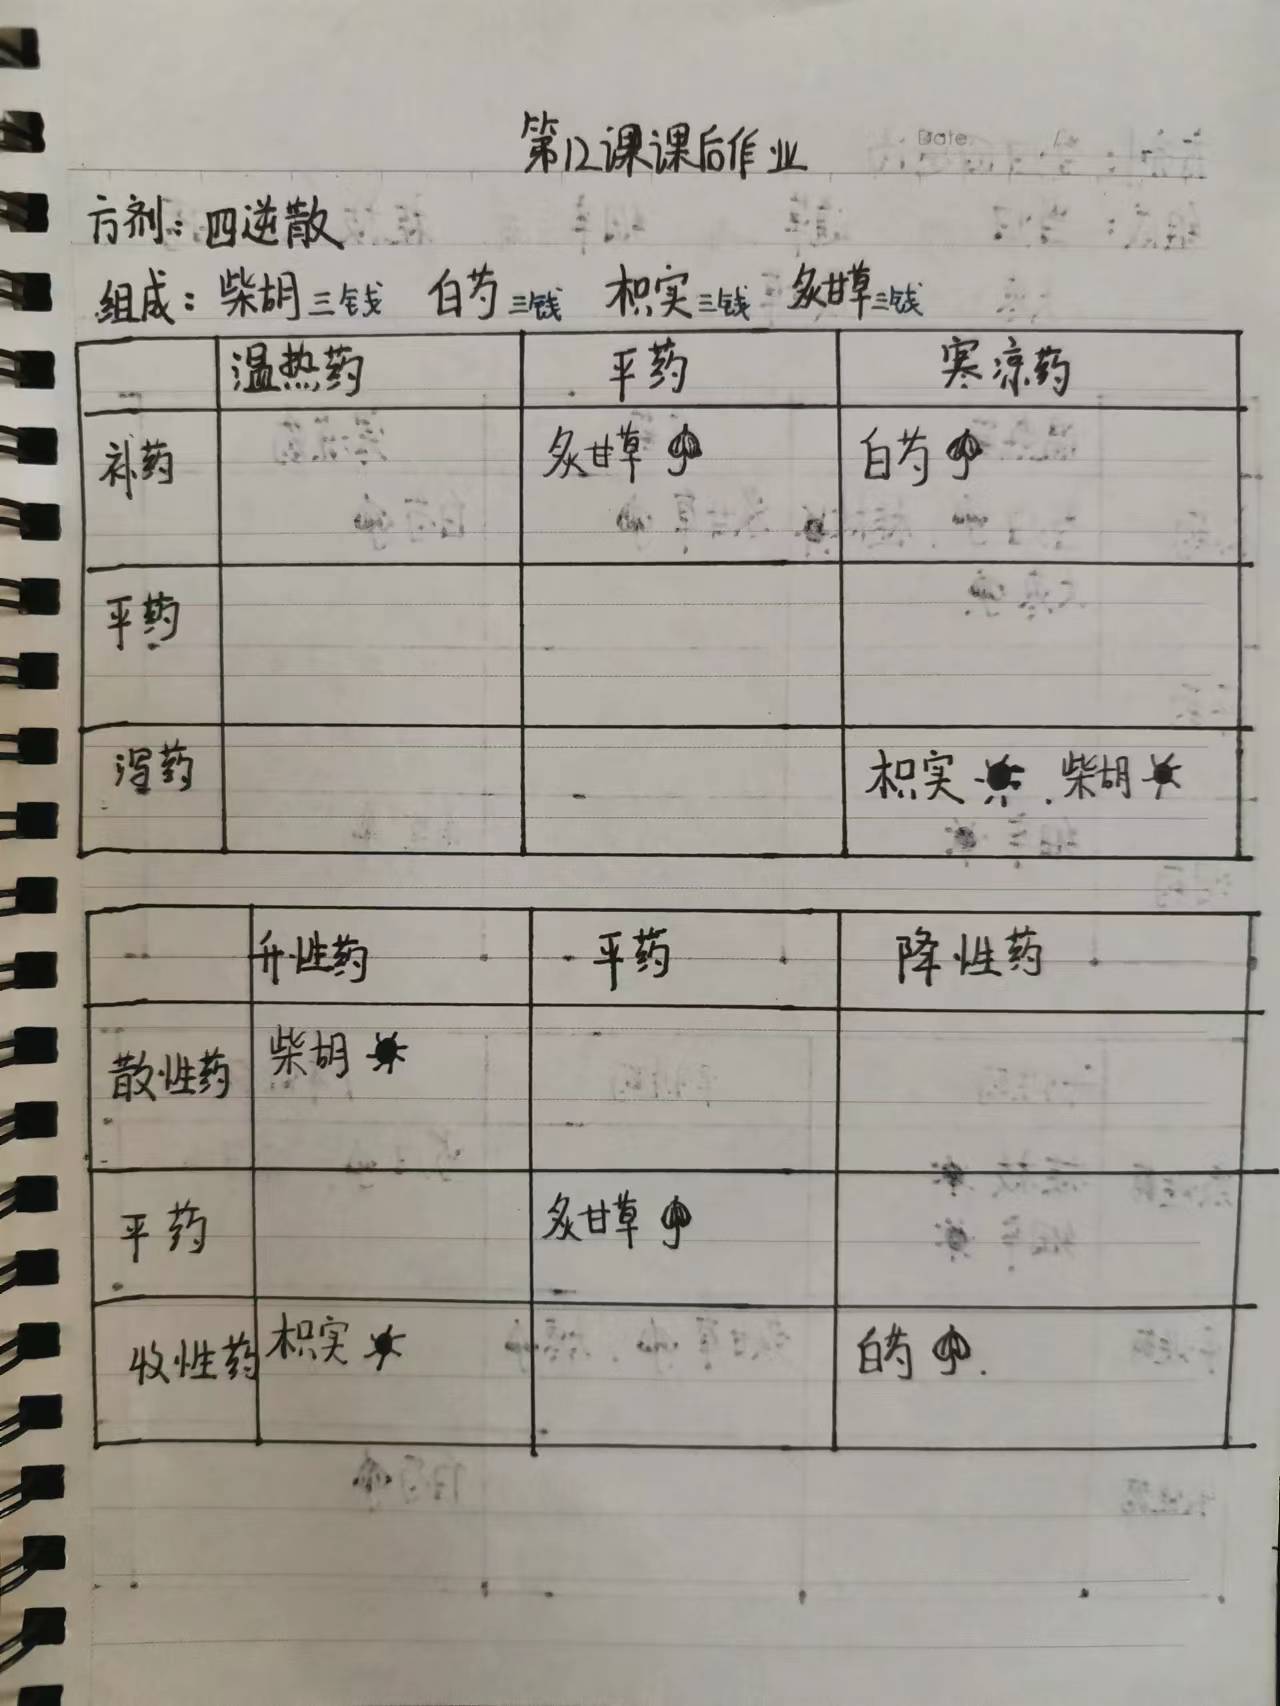 Date.
第12课课后作业
方剂：四逆散
组成：柴胡三钱 白芍三钱 枳实三钱 炙甘草三钱
温热药 平药 寒凉药
补药 炙甘草 白芍
平药
泻药 枳实 . 柴胡
升性药 平药 降性药
散性药 柴胡
平药 炙甘草
收性药 枳实 白芍 .